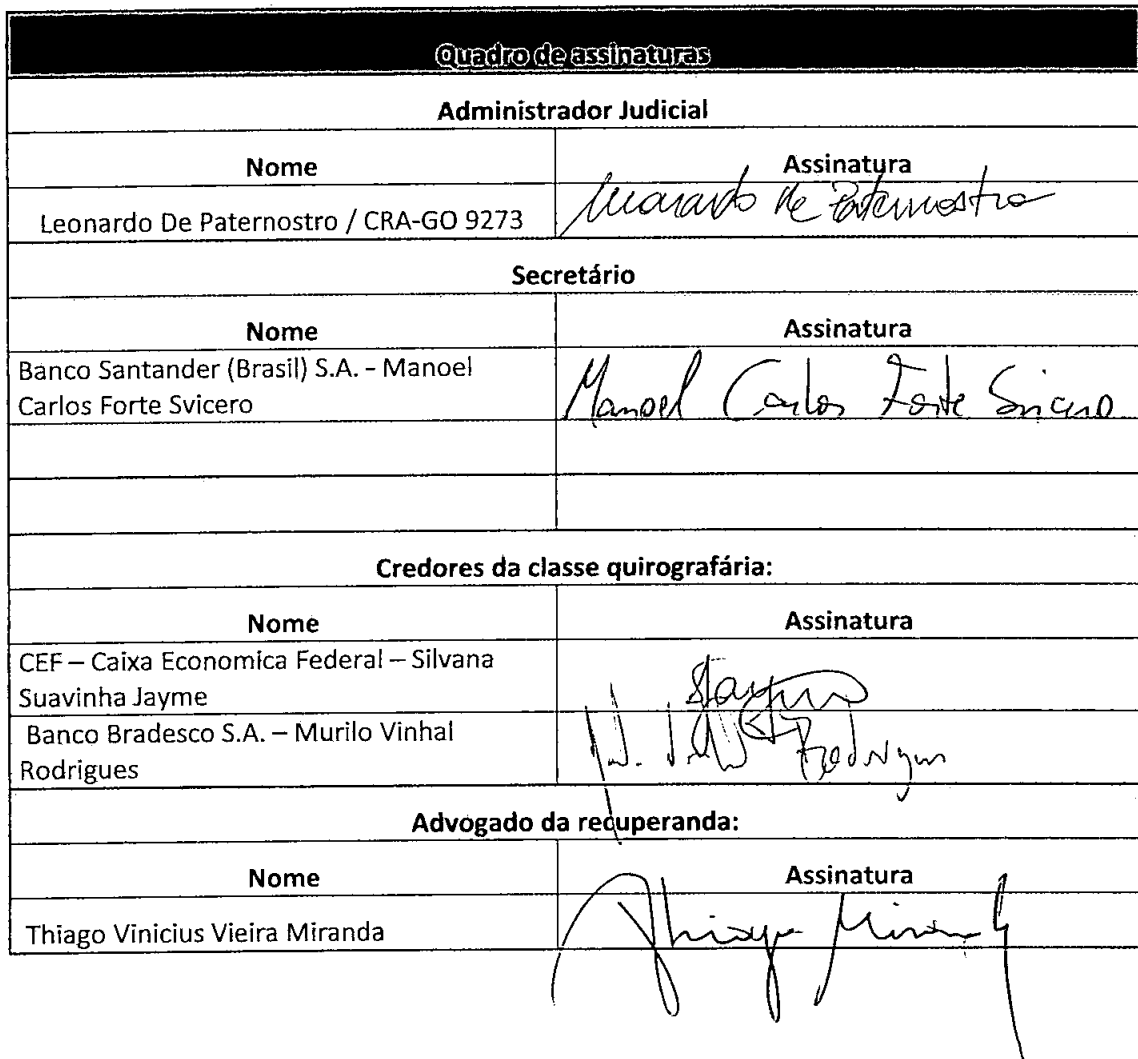 Quadro de assinaturas
Administrador Judicial
Nome Assinatura
Leonardo De Paternostro / CRA-GO 9273 Leonardo de Paternostro
Secretário
Nome Assinatura
Banco Santander (Brasil) S.A. - Manoel
Carlos Forte Svicero Manoel Carlos Forte Svicero
Credores da classe quirografária:
Nome Assinatura
CEF – Caixa Economica Federal – Silvana
Suavinha Jayme
Banco Bradesco S.A. – Murilo Vinhal
Rodrigues Rodrigues
Advogado da recuperanda:
Nome Assinatura
Thiago Vinicius Vieira Miranda Thiago Miranda